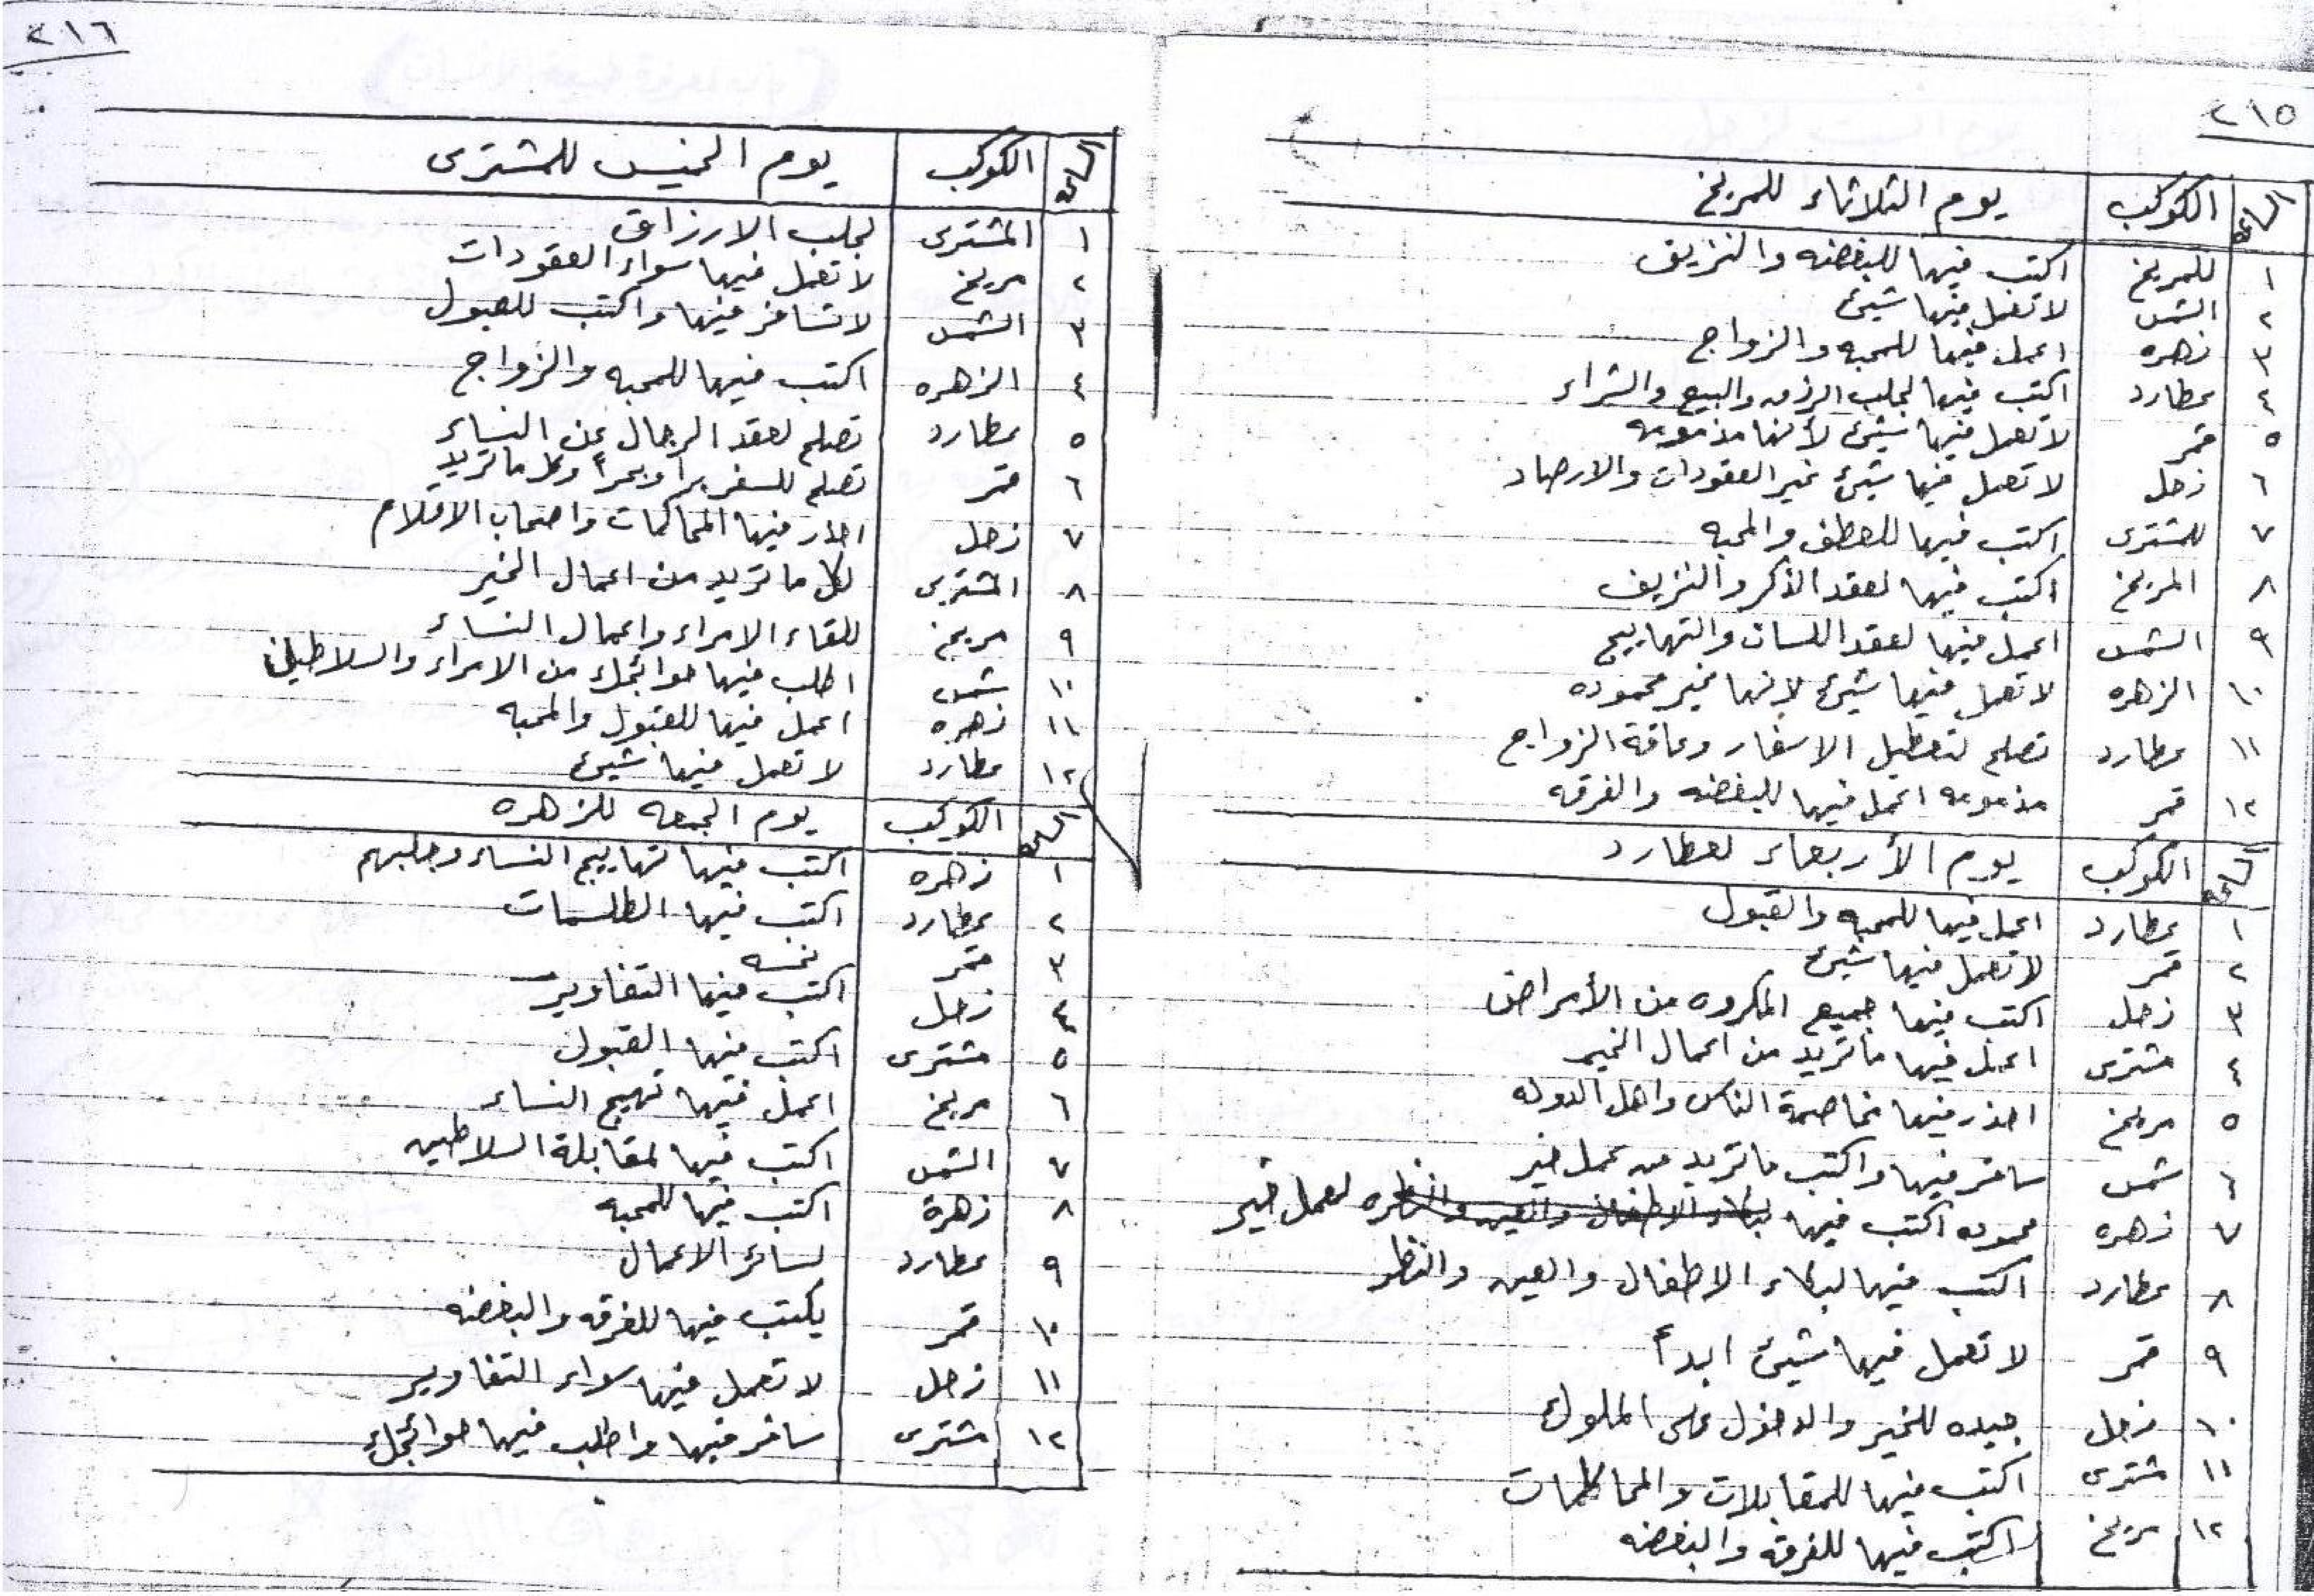 ٢١٥
الساعة الكوكب يوم الثلاثاء للمريخ
١ للمريخ اكتب فيها للبغضه والنزيف
٢ الشمس لا تعمل فيها شيئ
٣ زهره اعمل فيها للمحبه والزواج
٤ عطارد اكتب فيها لجلب الرزق والبيع والشراء
٥ قمر لا تعمل فيها شيئ لأنها مذمومه
٦ زحل لا تعمل فيها شيئ غير العقودات والارصاد
٧ للمشترى اكتب فيها للعطف والمحبه
٨ المريخ اكتب فيها لعقد الذكر والنزيف
٩ الشمس اعمل فيها لعقد اللسان والتهاييج
١٠ الزهره لا تعمل فيها شيئ لانها غير محموده
١١ عطارد تصلح لتعطيل الاسفار وعاقة الزواج
١٢ قمر مذمومه اعمل فيها للبغضه والفرقه
الساعة الكوكب يوم الأربعاء لعطارد
١ عطارد اعمل فيها للمحبه والقبول
٢ قمر لا تعمل فيها شيئ
٣ زحل اكتب فيها جميع المكروه من الأمراض
٤ مشترى اعمل فيها ما تريد من اعمال الخير
٥ مريخ احذر فيها مخاصمة الناس واهل الدوله
٦ شمس سافر فيها واكتب ما تريد من عمل خير
٧ زهره محموده اكتب فيها لبكاء الاطفال والعين والنظره لعمل خير
٨ عطارد اكتب فيها لبكاء الاطفال والعين والنظر
٩ قمر لا تعمل فيها شيئ ابدأ
١٠ زحل جيده للخير والدخول على الملوك
١١ مشترى اكتب فيها للمقابلات والمحاكمات
١٢ مريخ اكتب فيها للفرقه والبغضه
٢١٦
الساعة الكوكب يوم الخميس للمشترى
١ المشترى لجلب الارزاق
٢ مريخ لا تعمل فيها سواء العقودات
٣ الشمس لا تسافر فيها واكتب للقبول
٤ الزهره اكتب فيها للمحبه والزواج
٥ عطارد تصلح لعقد الرجال عن النساء
٦ قمر تصلح للسفر برا وبحراً وكل ما تريد
٧ زحل احذر فيها المحاكمات واصحاب الاقلام
٨ المشترى لكل ما تريد من اعمال الخير
٩ مريخ للقاء الامراء واعمال النساء
١٠ شمس اطلب فيها حوائجك من الامراء والسلاطين
١١ زهره اعمل فيها للقبول والمحبه
١٢ عطارد لا تعمل فيها شيئ
الساعة الكوكب يوم الجمعه للزهره
١ زهره اكتب فيها تهاييج النساء وجلبهم
٢ عطارد اكتب فيها الطلسمات
٣ قمر نحسه
٤ زحل اكتب فيها التغاوير
٥ مشترى اكتب فيها القبول
٦ مريخ اعمل فيها تهيج النساء
٧ الشمس اكتب فيها لمقابلة السلاطين
٨ زهرة اكتب فيها للمحبه
٩ عطارد لسائر الاعمال
١٠ قمر يكتب فيها للفرقه والبغضه
١١ زحل لا تعمل فيها سواء التغاوير
١٢ مشترى سافر فيها واطلب فيها حوائجك